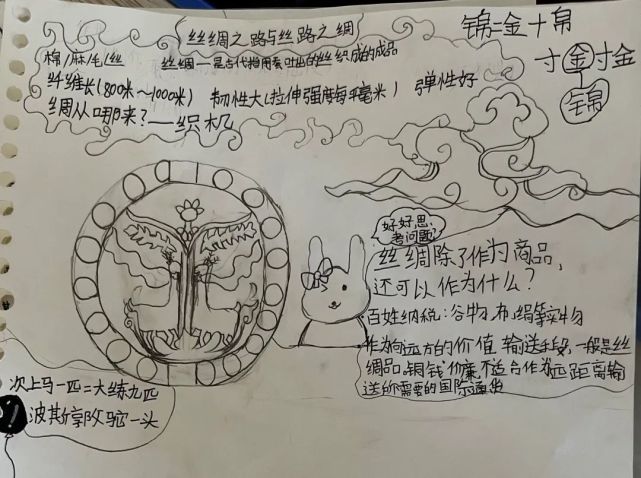 丝绸之路与丝路之绸
锦=金+帛
棉/麻/毛/丝
丝绸—是古代指用蚕吐出的丝织成的成品
寸金寸金
锦
纤维长(800米~1000米) 韧性大(拉伸强度每平毫米) 弹性好
绸从哪来?——织机
好好思
考问题?
丝绸除了作为商品,
还可以作为什么?
百姓纳税:谷物、布、绢等实物
作为向远方的价值输送手段,一般是丝
绸品,铜钱价廉,不适合作为远距离输
送所需要的国际通货
次上马一匹=大练九匹
波斯敦父驼一头